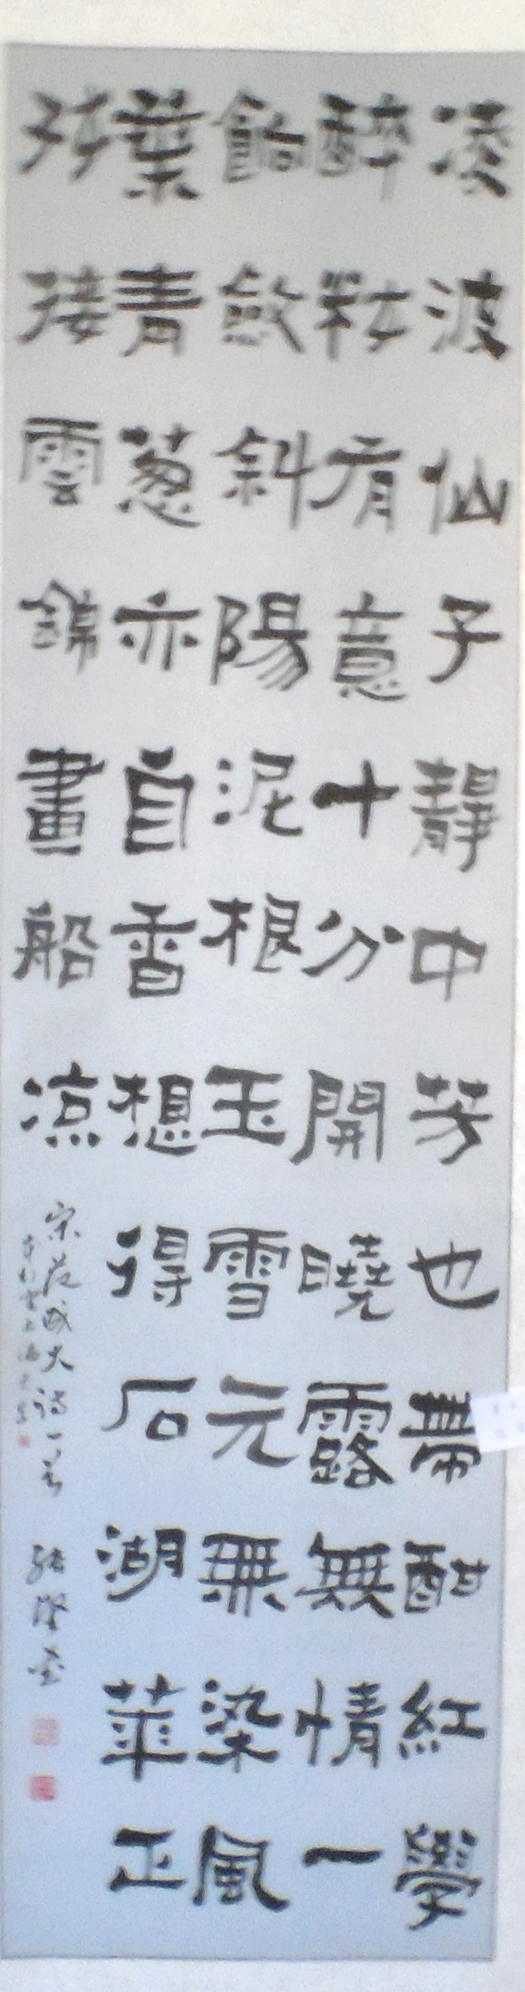 凌波仙子靜中芳也帶酣紅學
醉粧有意十分開曉露無情一
餉斂斜陽泥根玉雪元無染風
葉青葱亦自香想得石湖華正
好接雲錦畫船涼
宋范成大詩一首